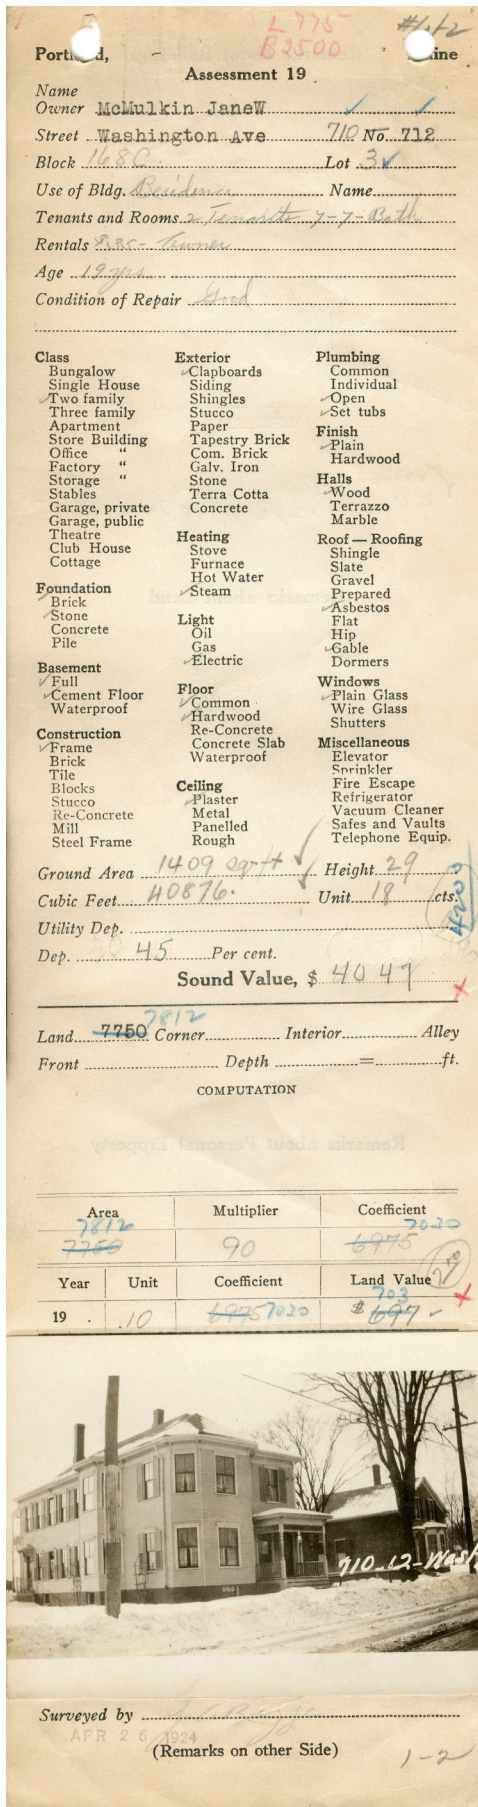 #1 of 2
L 775
B 2500
Portland, Maine
Assessment 19
Name
Owner McMulkin JaneW
Street Washington Ave 710 No. 712
Block 168C. Lot 3
Use of Bldg. Residence Name
Tenants and Rooms 2 Tenants 7-7-Bath
Rentals Owner
Age 19 yrs
Condition of Repair Good
Class
Bungalow
Single House
Two family
Three family
Apartment
Store Building
Office "
Factory "
Storage "
Stables
Garage, private
Garage, public
Theatre
Club House
Cottage
Foundation
Brick
Stone
Concrete
Pile
Basement
Full
Cement Floor
Waterproof
Construction
Frame
Brick
Tile
Blocks
Stucco
Re-Concrete
Mill
Steel Frame
Exterior
Clapboards
Siding
Shingles
Stucco
Paper
Tapestry Brick
Com. Brick
Galv. Iron
Stone
Terra Cotta
Concrete
Heating
Stove
Furnace
Hot Water
Steam
Light
Oil
Gas
Electric
Floor
Common
Hardwood
Re-Concrete
Concrete Slab
Waterproof
Ceiling
Plaster
Metal
Panelled
Rough
Plumbing
Common
Individual
Open
Set tubs
Finish
Plain
Hardwood
Halls
Wood
Terrazzo
Marble
Roof — Roofing
Shingle
Slate
Gravel
Prepared
Asbestos
Flat
Hip
Gable
Dormers
Windows
Plain Glass
Wire Glass
Shutters
Miscellaneous
Elevator
Sprinkler
Fire Escape
Refrigerator
Vacuum Cleaner
Safes and Vaults
Telephone Equip.
Ground Area 1409 sq ft Height 29
Cubic Feet 40876. Unit 18 cts.
4200
Utility Dep.
Dep. 45 Per cent.
Sound Value, $ 4047
7812
Land 7750 Corner Interior Alley
Front Depth = ft.
COMPUTATION
Area Multiplier Coefficient
7812 7020
7750 90 6975
Year Unit Coefficient Land Value
703
19 . .10 6975 7020 $ 697
710-12-Wash
Surveyed by
APR 26 1924
(Remarks on other Side)
1-2